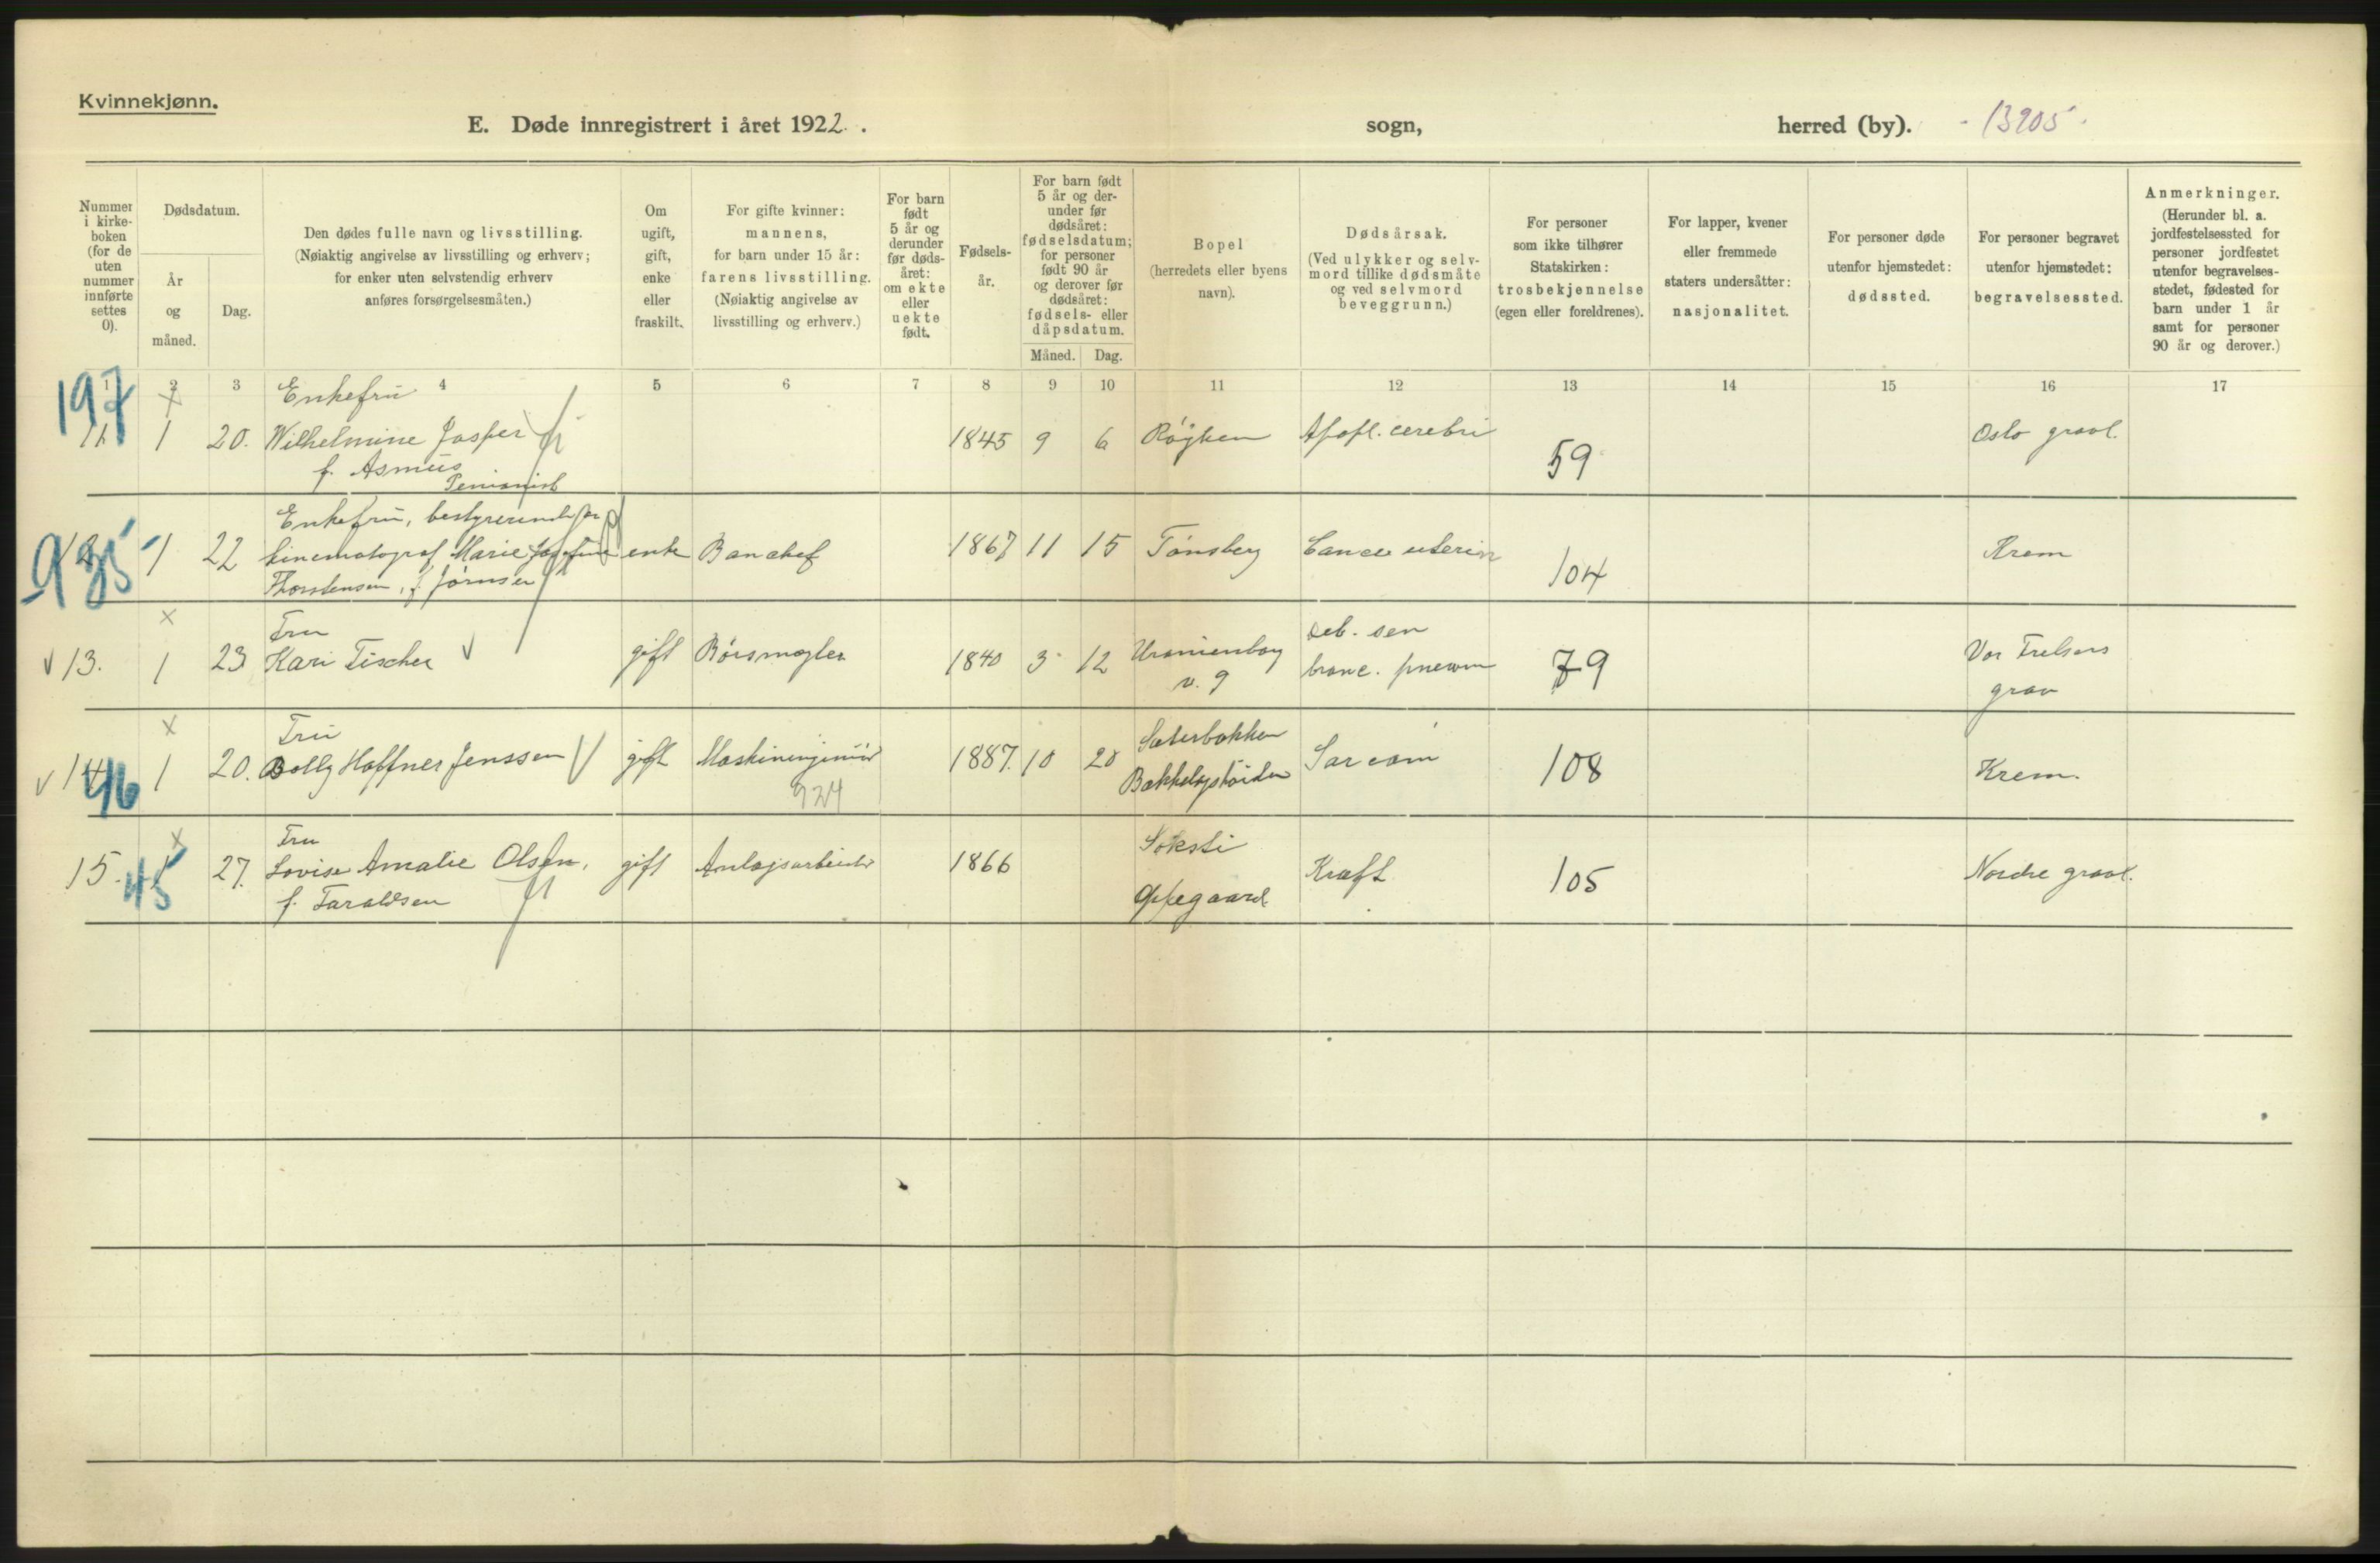 Kvinnekjønn.
E. Døde innregistrert i året 1922. sogn, herred (by). - 13905 -
Nummer i kirke-boken (for de uten nummer innførte settes 0).
Dødsdatum.
År og måned.
Dag.
Den dødes fulle navn og livsstilling.
(Nøiaktig angivelse av livsstilling og erhverv;
for enker uten selvstendig erhverv
anføres forsørgelsesmåten.)
Om ugift, gift, enke eller fraskilt.
For gifte kvinner:
mannens,
for barn under 15 år:
farens livsstilling.
(Nøiaktig angivelse av
livsstilling og erhverv.)
For barn født 5 år og derunder før døds-året: om ekte eller uekte født.
Fødsels-år.
For barn født 5 år og der-under før dødsåret: fødselsdatum; for personer født 90 år og derover før dødsåret: fødsels- eller dåpsdatum.
Måned.
Dag.
Bopel
(herredets eller byens
navn).
Dødsårsak.
(Ved ulykker og selv-
mord tillike dødsmåte
og ved selvmord
beveggrunn.)
For personer
som ikke tilhører
Statskirken:
trosbekjennelse
(egen eller foreldrenes).
For lapper, kvener
eller fremmede
staters undersåtter:
nasjonalitet.
For personer døde
utenfor hjemstedet:
dødssted.
For personer begravet
utenfor hjemstedet:
begravelsessted.
Anmerkninger.
(Herunder bl. a.
jordfestelsessted for
personer jordfestet
utenfor begravelses-
stedet, fødested for
barn under 1 år
samt for personer
90 år og derover.)
1 2 3 4 5 6 7 8 9 10 11 12 13 14 15 16 17
197 x Enkefru
1 20. Wilhelmine Jasper 1845 9 6 Røyken Apopl. cerebri 59 Oslo gravl.
f. Asmus
Pensionist
935 Enkefru, bestyrerinde for
1 22 kinematograf Marie Josefine enke Banchef 1867 11 15 Tønsberg Cancer uterin 104 Krem
Thorstensen, f. Jørnsen
x Fru
13. 1 23 Kari Fischer gift Børsmegler 1840 3 12 Uranienborg v. 9 Deb. sen bronc. pneum 79 Vor Frelsers grav
x Fru
14 46 1 20. Dolly Haffner Jenssen gift Maskiningeniør 924 1887. 10 20 Sæterbakken Bækkelagshøiden Sarcom 108 Krem.
x Fru
15. 45 1 27. Lovise Amalie Olsen, gift Anlægsarbeider 1866 Oppegaard Kræft 105 Nordre gravl.
f. Taraldsen